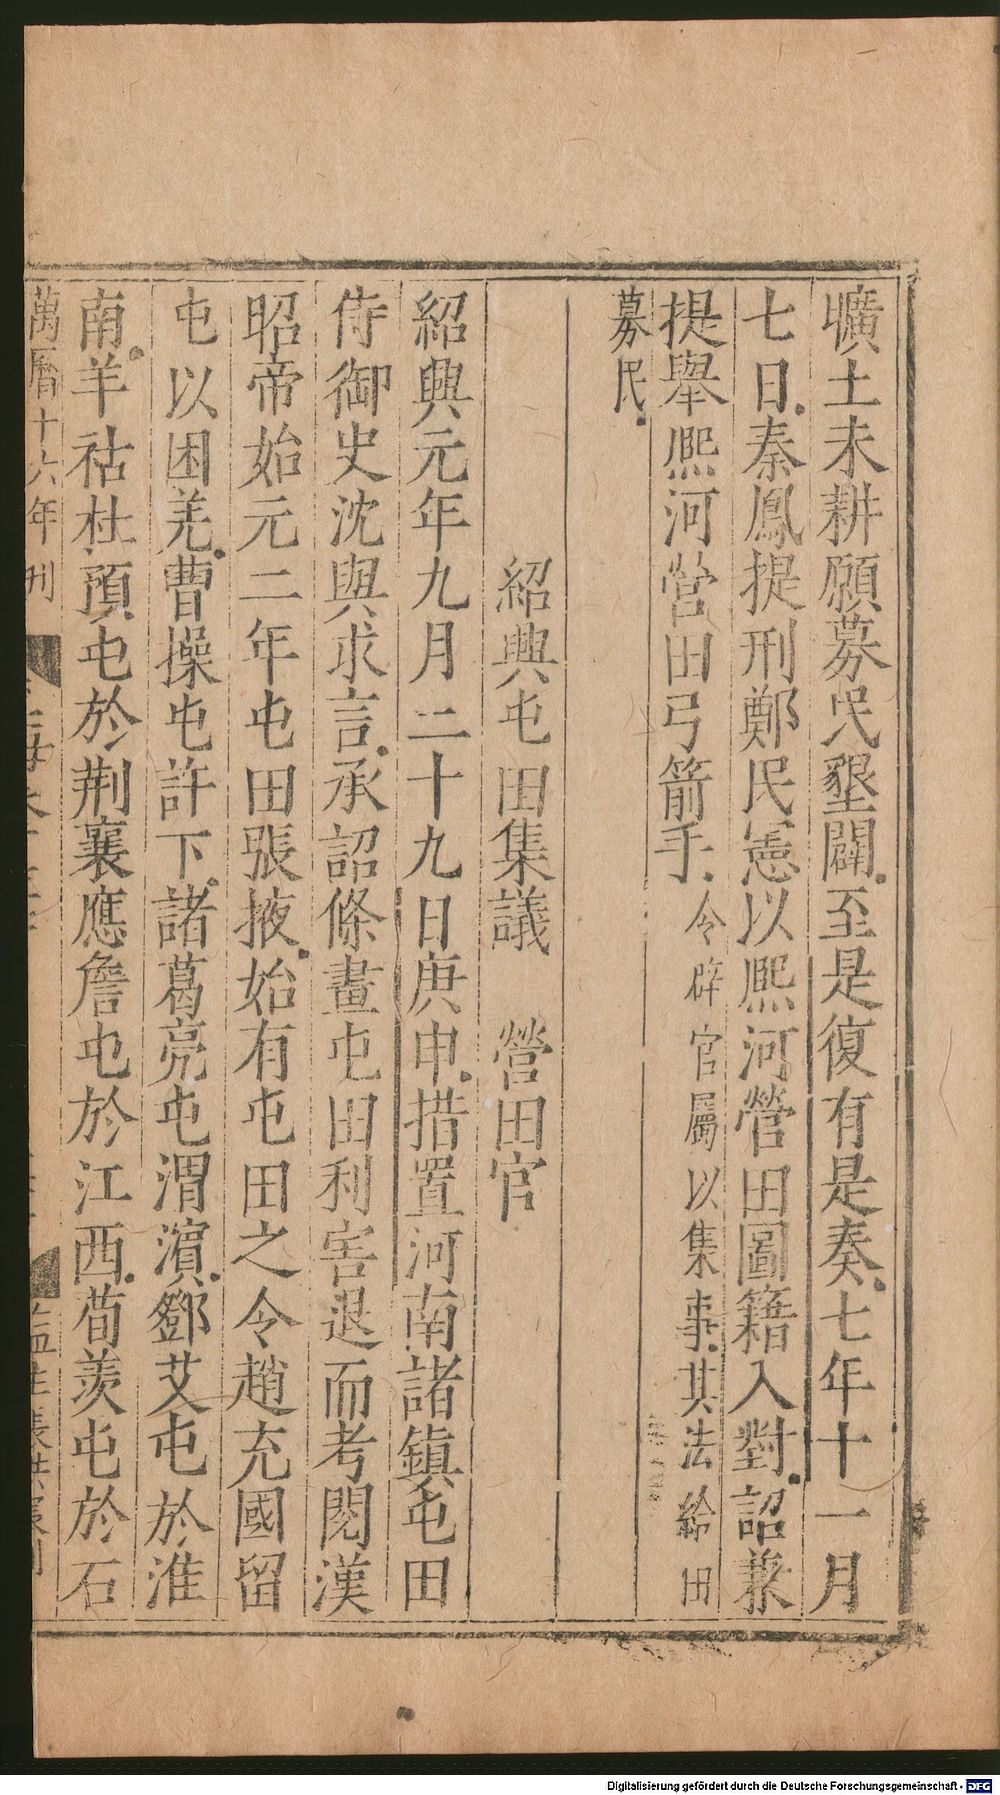 曠土未耕願募民墾闢至是復有是奏七年十一月
七日秦鳳提刑鄭民憲以熙河營田圖籍入對詔兼
提舉熙河營田弓箭手令辟官屬以集事其法給田
募民
紹興屯田集議 營田官
紹興元年九月二十九日庚申措置河南諸鎮屯田
侍御史沈與求言承詔條畫屯田利害退而考閱漢
昭帝始元二年屯田張掖始有屯田之令趙充國留
屯以困羌曹操屯許下諸葛亮屯渭濱鄧艾屯於淮
南羊祜杜預屯於荆襄應詹屯於江西荀羡屯於石
萬曆十六年刊 監生
Digitalisierung gefördert durch die Deutsche Forschungsgemeinschaft - DFG